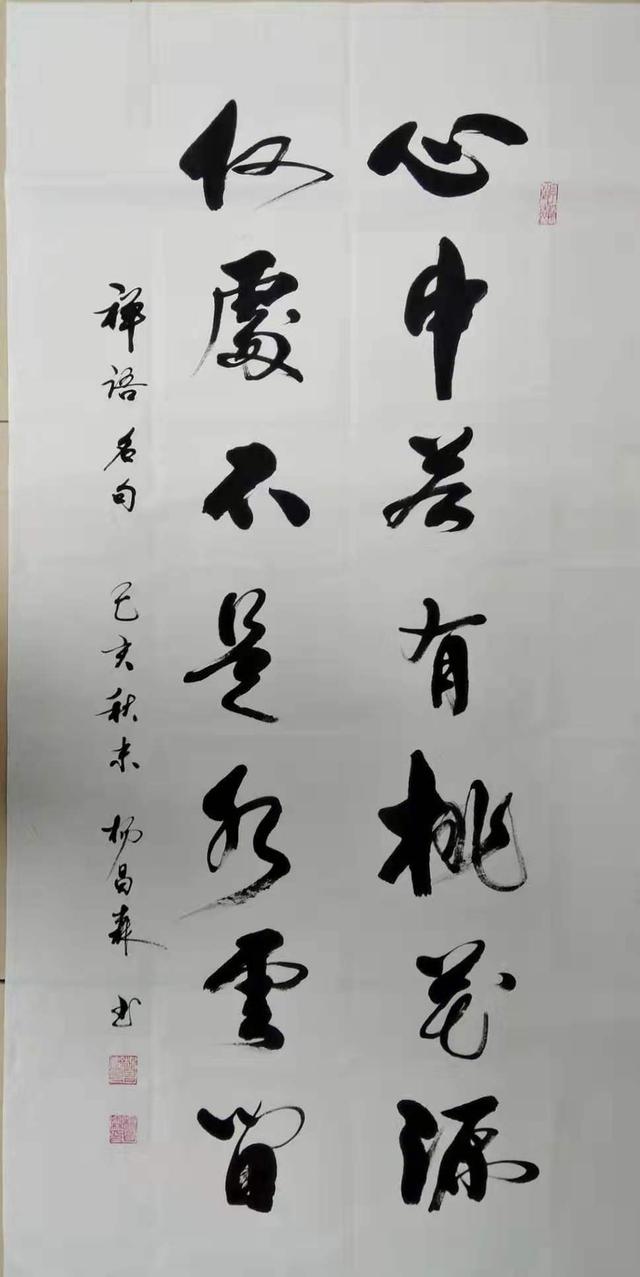 心中若有桃花源
何處不是水雲間
禅语名句 己亥秋末 杨昌森书